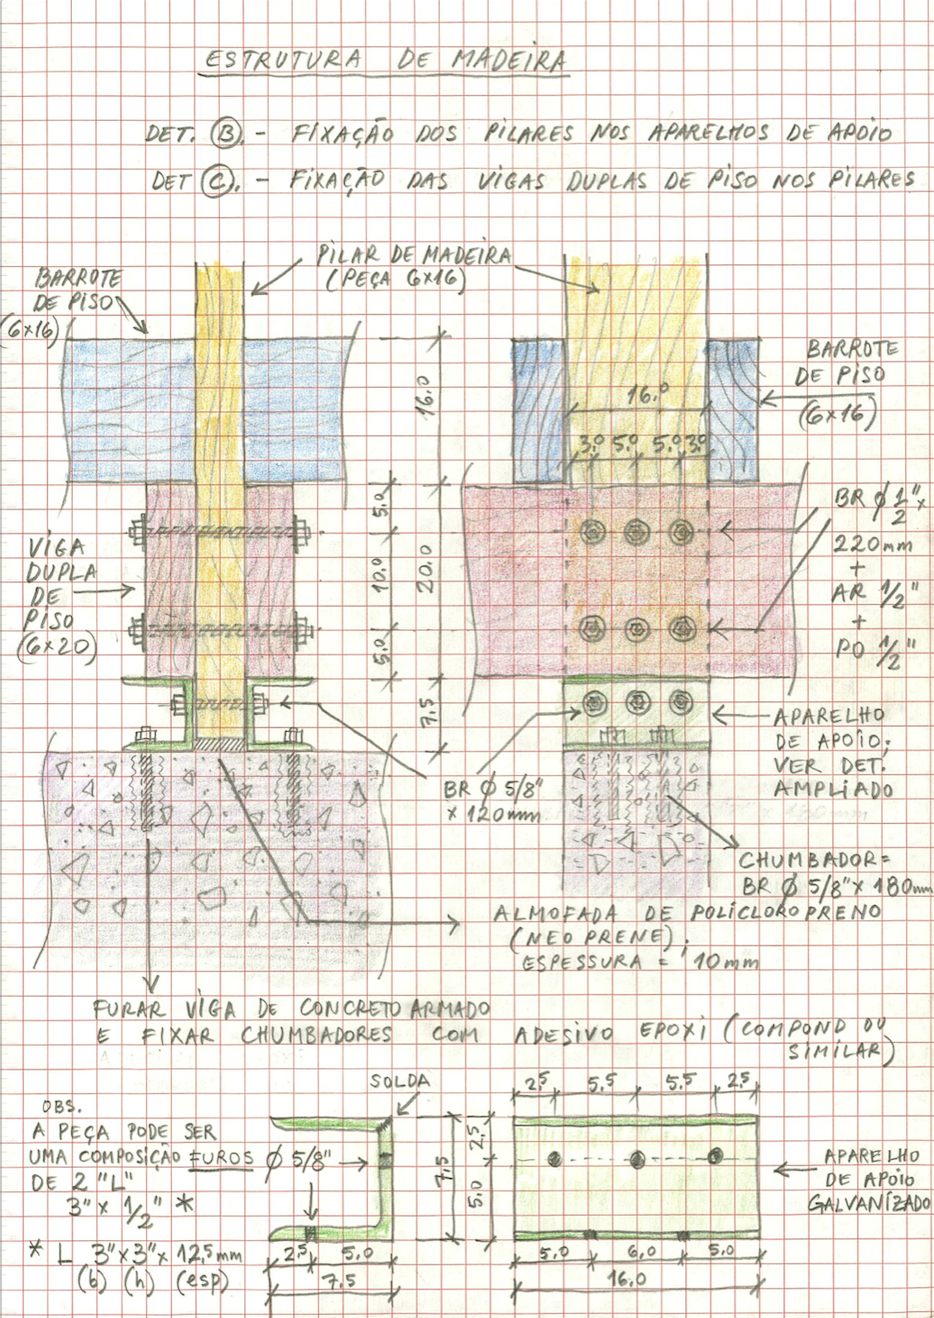 ESTRUTURA DE MADEIRA
DET. (B). - FIXAÇÃO DOS PILARES NOS APARELHOS DE APOIO
DET (C). - FIXAÇÃO DAS VIGAS DUPLAS DE PISO NOS PILARES
PILAR DE MADEIRA
(PEÇA 6x16)
BARROTE
DE PISO
(6x16)
16.0
BARROTE
DE PISO
(6x16)
16.0
3.0 5.0 5.0 3.0
VIGA
DUPLA
DE
PISO
(6x20)
5.0
10.0
5.0
20.0
7.5
BR Ø 1/2" x
220mm
+
AR 1/2"
+
PO 1/2"
APARELHO
DE APOIO;
VER DET.
AMPLIADO
BR Ø 5/8"
x 120mm
CHUMBADOR =
BR Ø 5/8" x 180mm
ALMOFADA DE POLICLOROPRENO
(NEOPRENE);
ESPESSURA = 10mm
FURAR VIGA DE CONCRETO ARMADO
E FIXAR CHUMBADORES COM ADESIVO EPOXI (COMPOND OU
SIMILAR)
OBS.
A PEÇA PODE SER
UMA COMPOSIÇÃO
DE 2 "L"
3" x 1/2" *
* L 3"x3"x 12,5mm
(b) (h) (esp)
SOLDA
FUROS Ø 5/8"
7.5
2.5
5.0
2.5 5.0
7.5
2.5 5.5 5.5 2.5
5.0 6.0 5.0
16.0
APARELHO
DE APOIO
GALVANIZADO